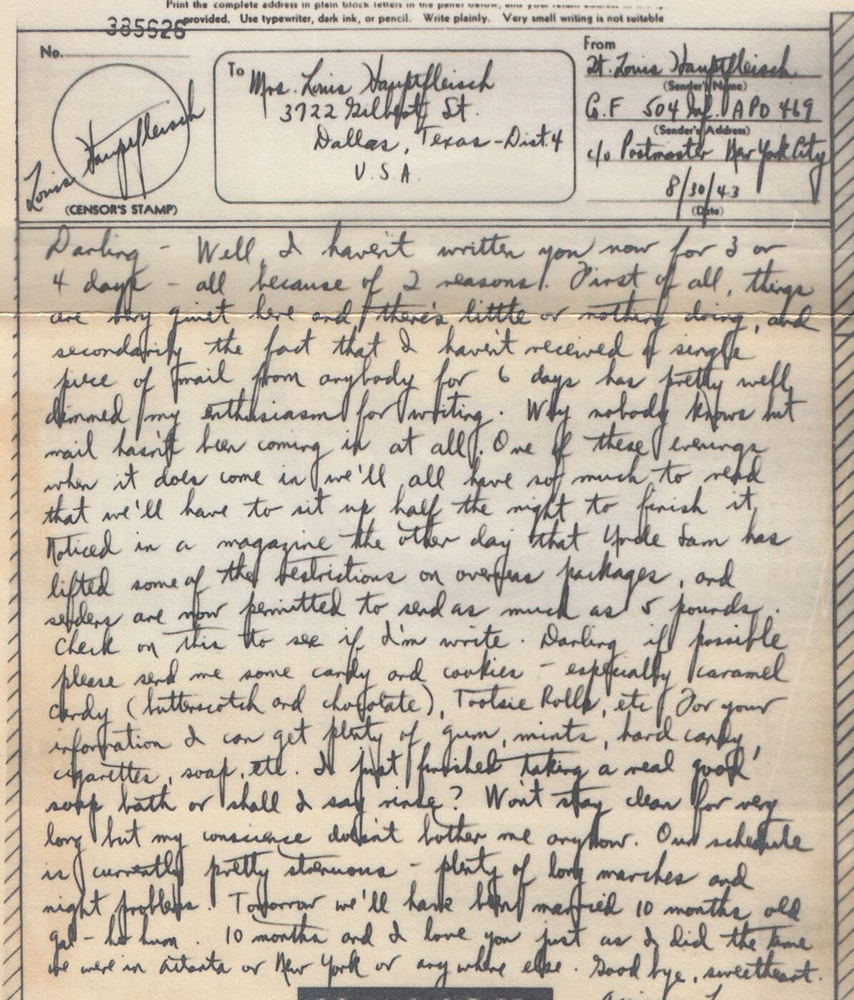 Print the complete address in plain block letters in the panel below, and your return address in
provided. Use typewriter, dark ink, or pencil. Write plainly. Very small writing is not suitable
385626
No.
Louis Hauptfleisch
(CENSOR'S STAMP)
To
Mrs. Louis Hauptfleisch
3722 Gilbert St.
Dallas, Texas - Dist. 4
U.S.A.
From
Lt. Louis Hauptfleisch
(Sender's Name)
Co. F 504 Inf. APO 469
(Sender's Address)
c/o Postmaster New York City
8/30/43
(Date)
Darling - Well, I haven't written you now for 3 or
4 days - all because of 2 reasons. First of all, things
are very quiet here and there's little or nothing doing, and
secondarily the fact that I haven't received a single
piece of mail from anybody for 6 days has pretty well
dimmed my enthusiasm for writing. Why nobody knows but
mail hasn't been coming in at all. One of these evenings
when it does come in we'll all have so much to read
that we'll have to sit up half the night to finish it.
Noticed in a magazine the other day that Uncle Sam has
lifted some of the restrictions on overseas packages, and
senders are now permitted to send as much as 5 pounds.
Check on this to see if I'm write. Darling if possible
please send me some candy and cookies - especially caramel
candy (butterscotch and chocolate), Tootsie Rolls, etc. For your
information I can get plenty of gum, mints, hard candy,
cigarettes, soap, etc. I just finished taking a real good
soap bath or shall I say rinse? Won't stay clean for very
long but my conscience doesn't bother me anyhow. Our schedule
is currently pretty strenuous - plenty of long marches and
night problems. Tomorrow we'll have been married 10 months, old
gal - ho hum. 10 months and I love you just as I did the time
we were in Atlanta or New York or anywhere else. Good bye, sweetheart.